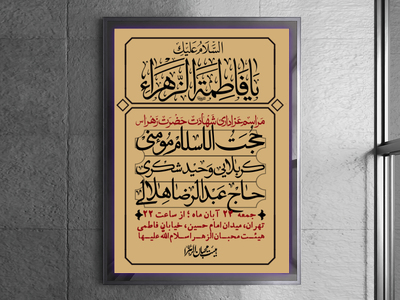 السَّلامُ عَلَیْكِ
یا فاطِمَةُ الزَّهراء
مراسم عزاداری شهادت حضرت زهرا س
حجت الاسلام مومنی
کربلایی وحید شکری
حاج عبدالرضا هلالی
جمعه ۲۳ آبان ماه ؛ از ساعت ۲۲
تهران، میدان امام حسین، خیابان فاطمی
هیئت محبان الزهرا سلام الله علیها
هیئت محبان الزهرا